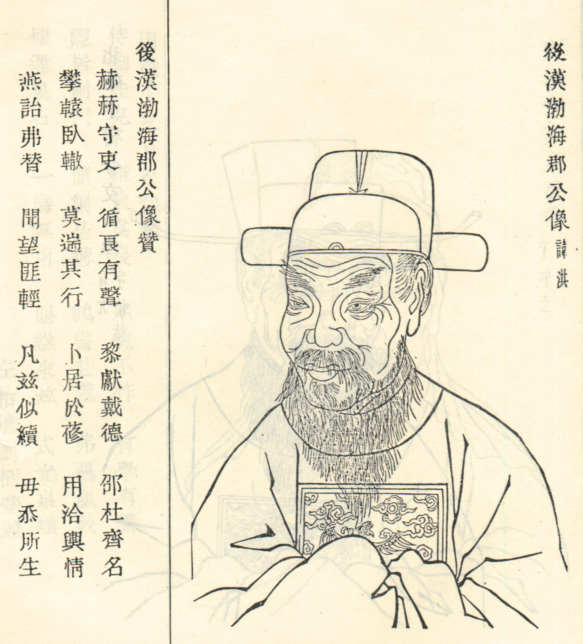 後漢渤海郡公像 諱洪
後漢渤海郡公像贊
赫赫守吏 循良有聲 黎獻戴德 邵杜齊名
攀轅臥轍 莫遄其行 卜居於蓚 用洽輿情
燕詒弗替 聞望匪輕 凡兹似續 毋忝所生